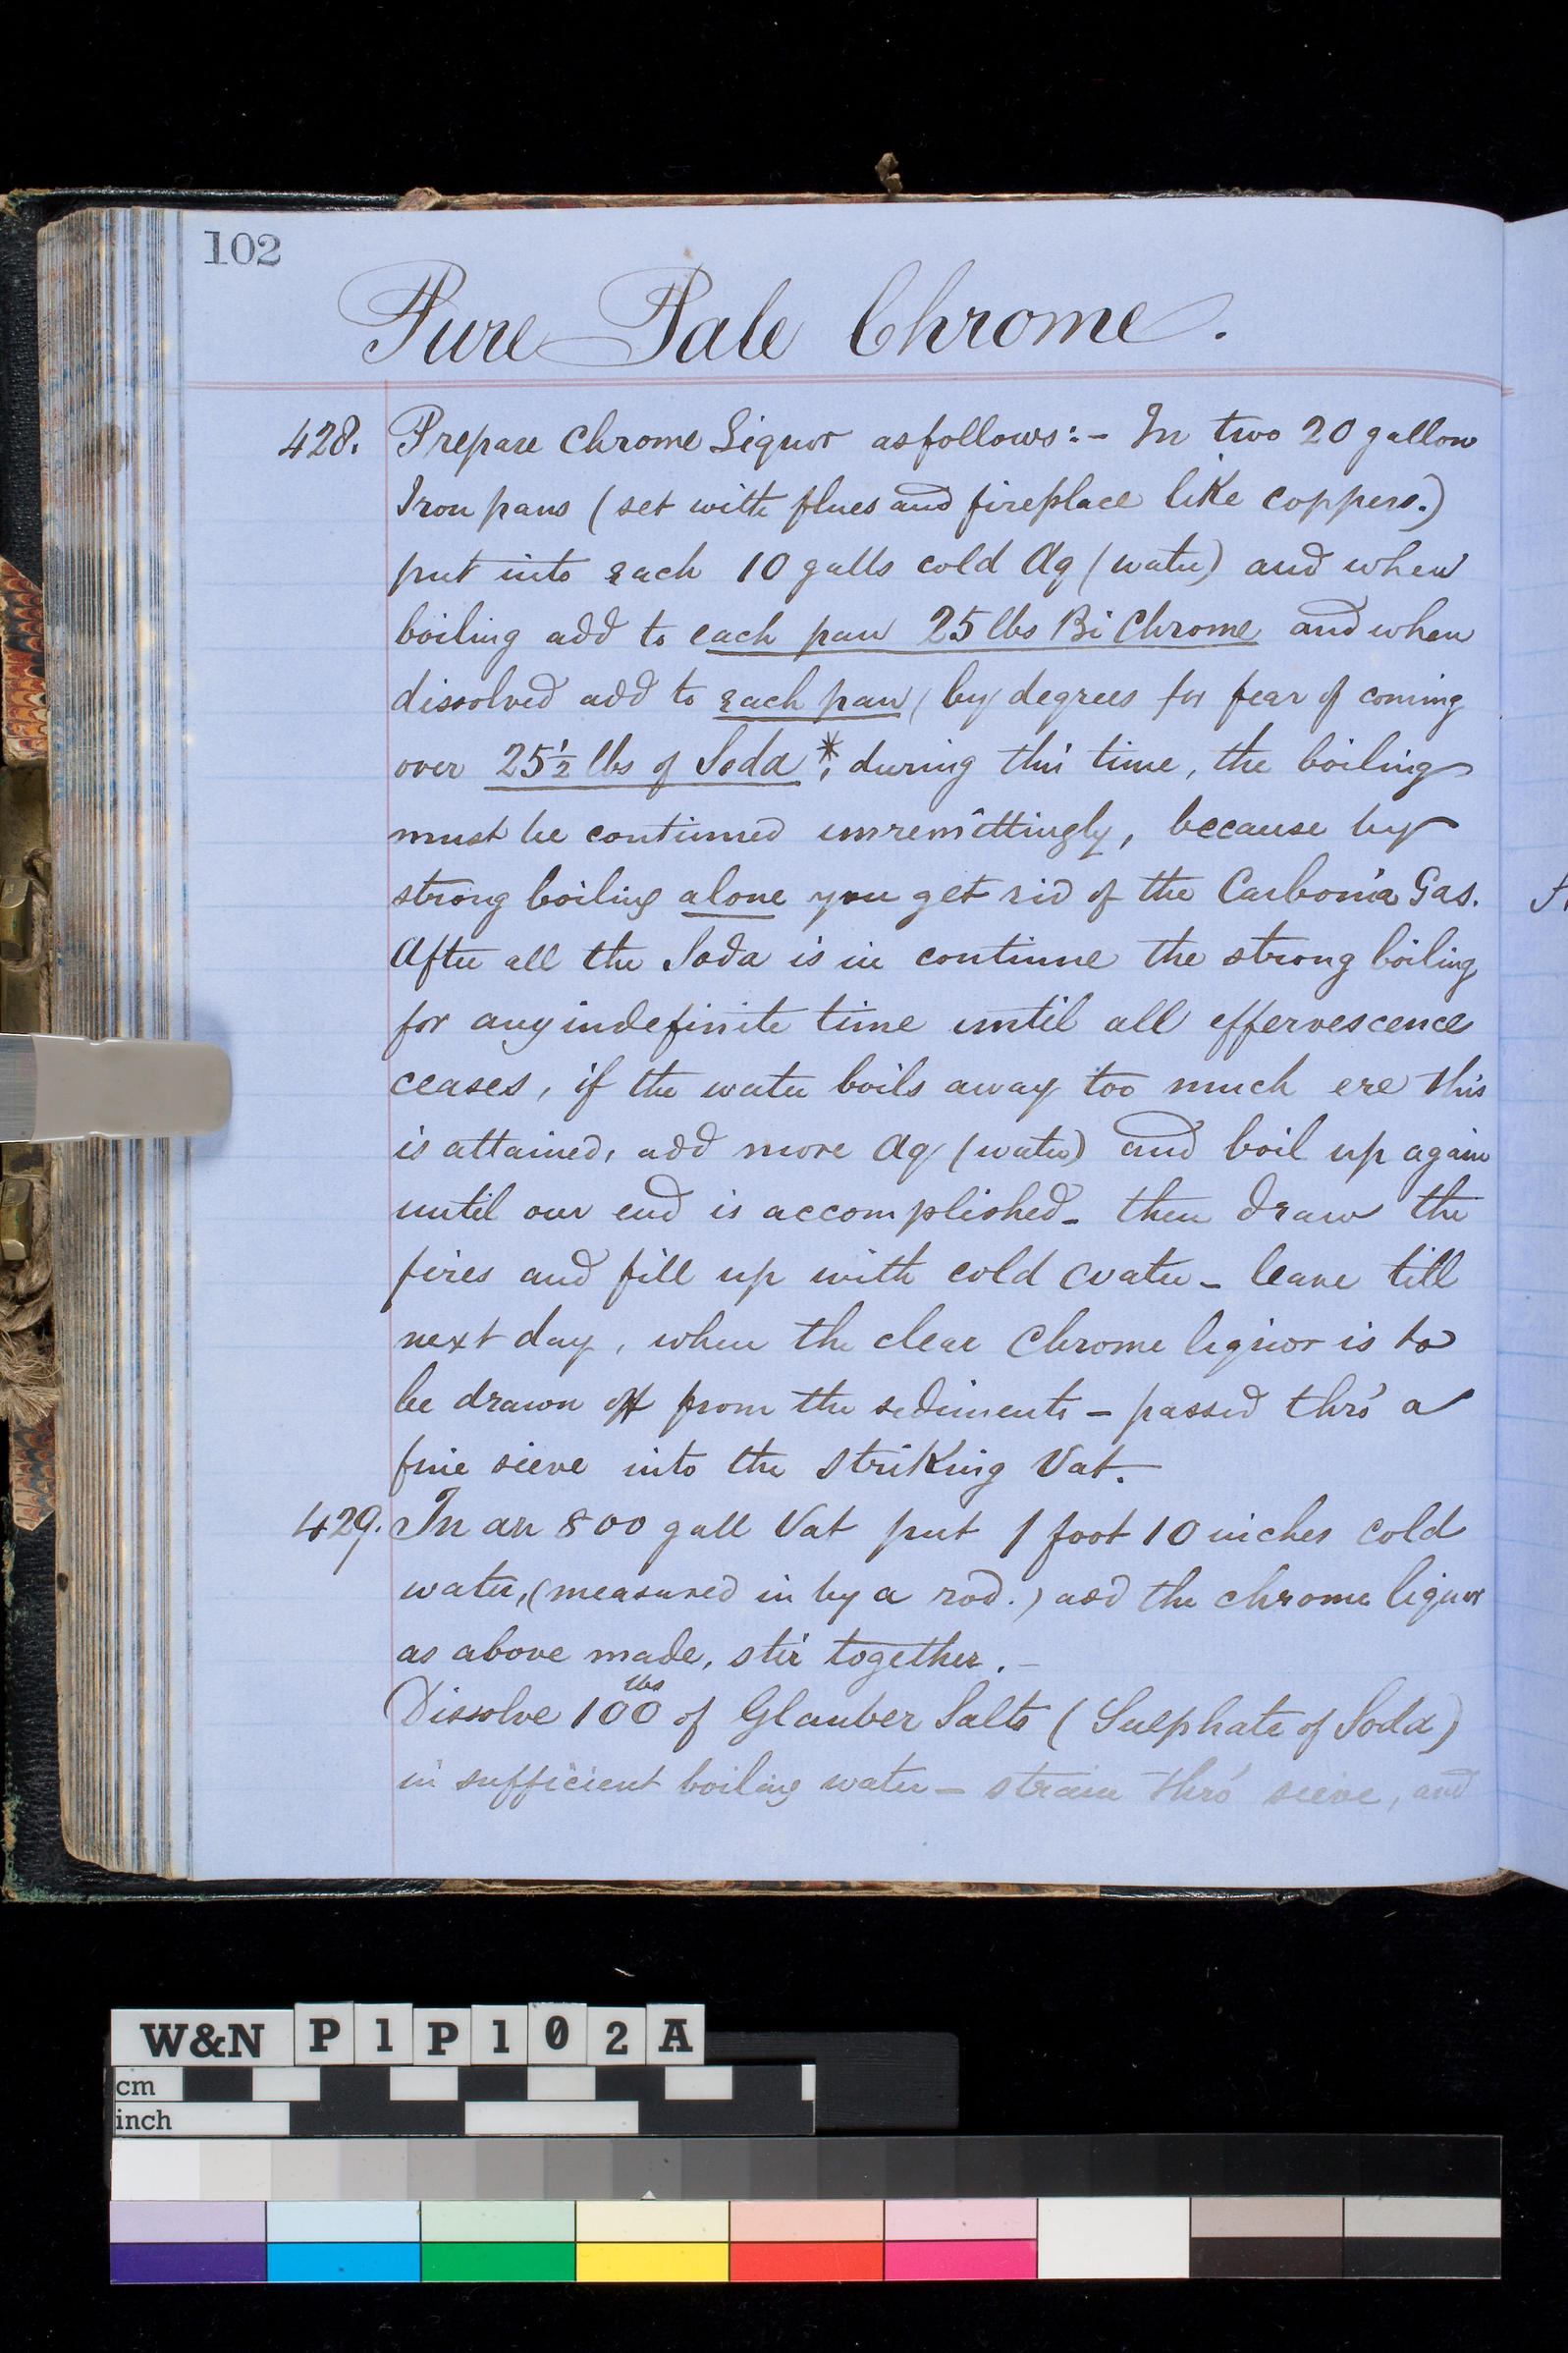 102
Pure Pale Chrome.
428. Prepare Chrome Liquor as follows:- In two 20 gallon
Iron pans (set with flues and fireplace like coppers.)
put into each 10 galls cold Aq (water) and when
boiling add to each pan 25 lbs Bi Chrome and when
dissolved add to each pan (by degrees for fear of coming
over 25½ lbs of Soda*, during this time, the boiling
must be continued unremittingly, because by
strong boiling alone you get rid of the Carbonic Gas.
After all the Soda is in continue the strong boiling
for any indefinite time until all effervescence
ceases, if the water boils away too much ere this
is attained, add more Aq (water) and boil up again
until our end is accomplished - then draw the
fires and fill up with cold water - leave till
next day, when the clear Chrome liquor is to
be drawn off from the sediments - passed thro' a
fine sieve into the Striking Vat.
429. In an 800 gall Vat put 1 foot 10 inches cold
water, (measured in by a rod.) add the chrome liquor
as above made, stir together. -
Dissolve 100 lbs of Glauber Salts (Sulphate of Soda)
in sufficient boiling water - strain thro' sieve, and
W&N P1P102A
cm
inch